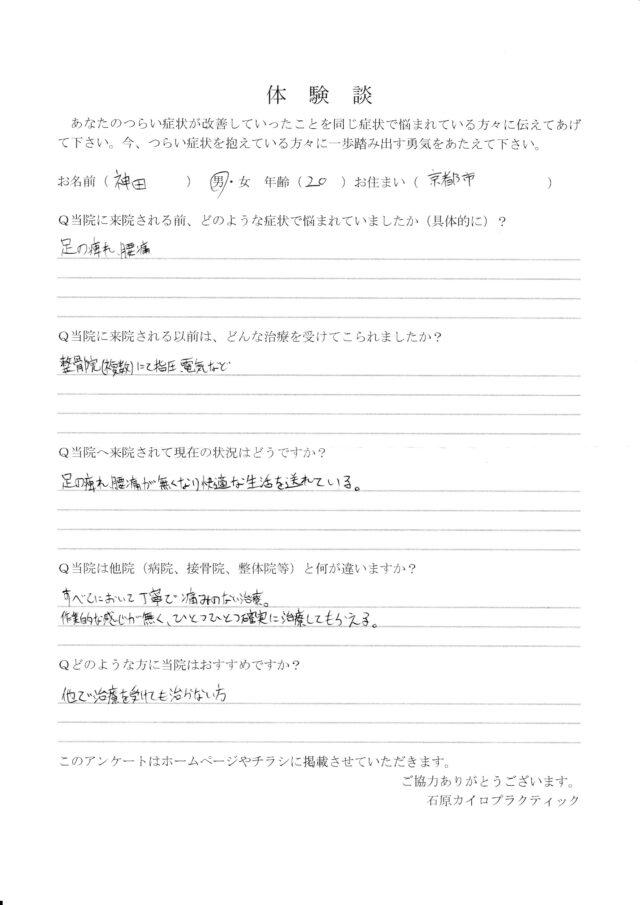 体験談
あなたのつらい症状が改善していったことを同じ症状で悩まれている方々に伝えてあげ
て下さい。今、つらい症状を抱えている方々に一歩踏み出す勇気をあたえて下さい。
お名前（神田　　）　男・女　年齢（20　）お住まい（　京都市　　　　　）
Ｑ当院に来院される前、どのような症状で悩まれていましたか（具体的に）？
足の痺れ、腰痛
Ｑ当院に来院される以前は、どんな治療を受けてこられましたか？
整骨院(複数)にて指圧 電気など
Ｑ当院へ来院されて現在の状況はどうですか？
足の痺れ、腰痛が無くなり快適な生活を送れている。
Ｑ当院は他院（病院、接骨院、整体院等）と何が違いますか？
すべてにおいて丁寧で痛みのない治療。
作業的な感じが無く、ひとつひとつ確実に治療してもらえる。
Ｑどのような方に当院はおすすめですか？
他で治療を受けても治らない方
このアンケートはホームページやチラシに掲載させていただきます。
ご協力ありがとうございます。
石原カイロプラクティック